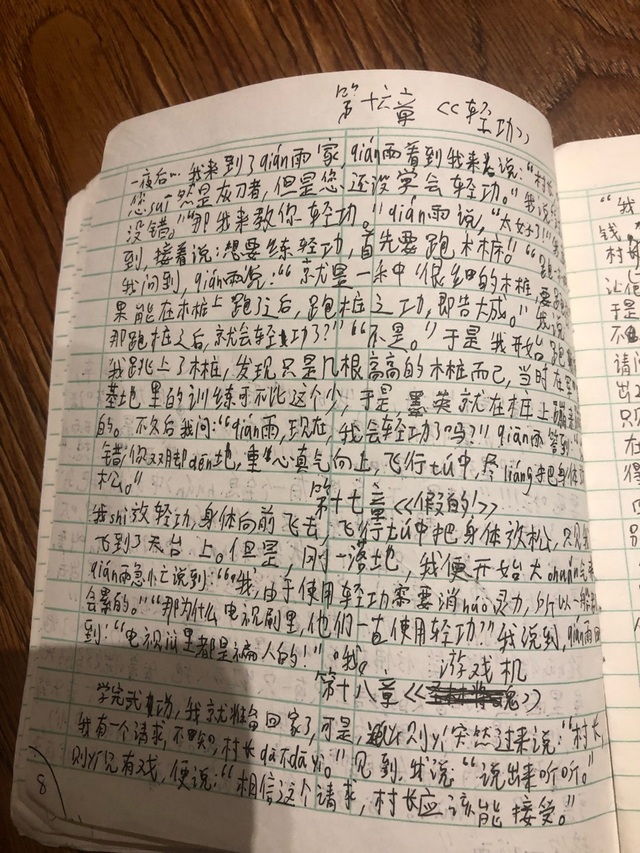 第十六章 《轻功》
一夜后… 我来到了qián雨家,qián雨看到我来后说:“村长
您suī然是灰刃者,但是您还没学会轻功。”我说
没错。”“那我来教你轻功。”qián雨说,“太好了!”
到,接着说:想要练轻功,首先要跑木桩。”“跑
我问到,qián雨说:“就是一种很细的木桩,要
果能在木桩上跑了之后,跑桩之功,即告大成。”我说
那跑桩之后,就会轻功了?”“不是。”于是我开始跑
我跳上了木桩,发现只是几根高高的木桩而已,当时在
基地里的训练可不比这个少,于是,就在桩上
的。不久后我问:“qián雨,现在,我会轻功了吗?”qián雨答到
错,你双脚dēn地,重心真气向上,飞行tú中,尽liàng把身体放
松。
第十七章 《假的!》
我shī放轻功,身体向前飞去,飞行tú中把身体放松,只见我
飞到了天台上。但是,刚一落地,我便开始大chuǎn气
qián雨急忙说到:“我,由于使用轻功需要消hào灵力,所以一般
会累的。”“那为什么电视剧里,他们一直使用轻功?”我说到,qián雨回
到:“电视里都是骗人的!”“我。
游戏机
第十八章 《》
学完武功,我就准备回家了,可是,突然过来说:“村长,
我有一个请求,不知,村长dā不dā yì。”见到,我说:“说出来听听。”
见有戏,便说:“相信这个请求,村长应该能接受。”
8
“我
钱,
村
让
于是
不
请
出
只
在
得
四
别